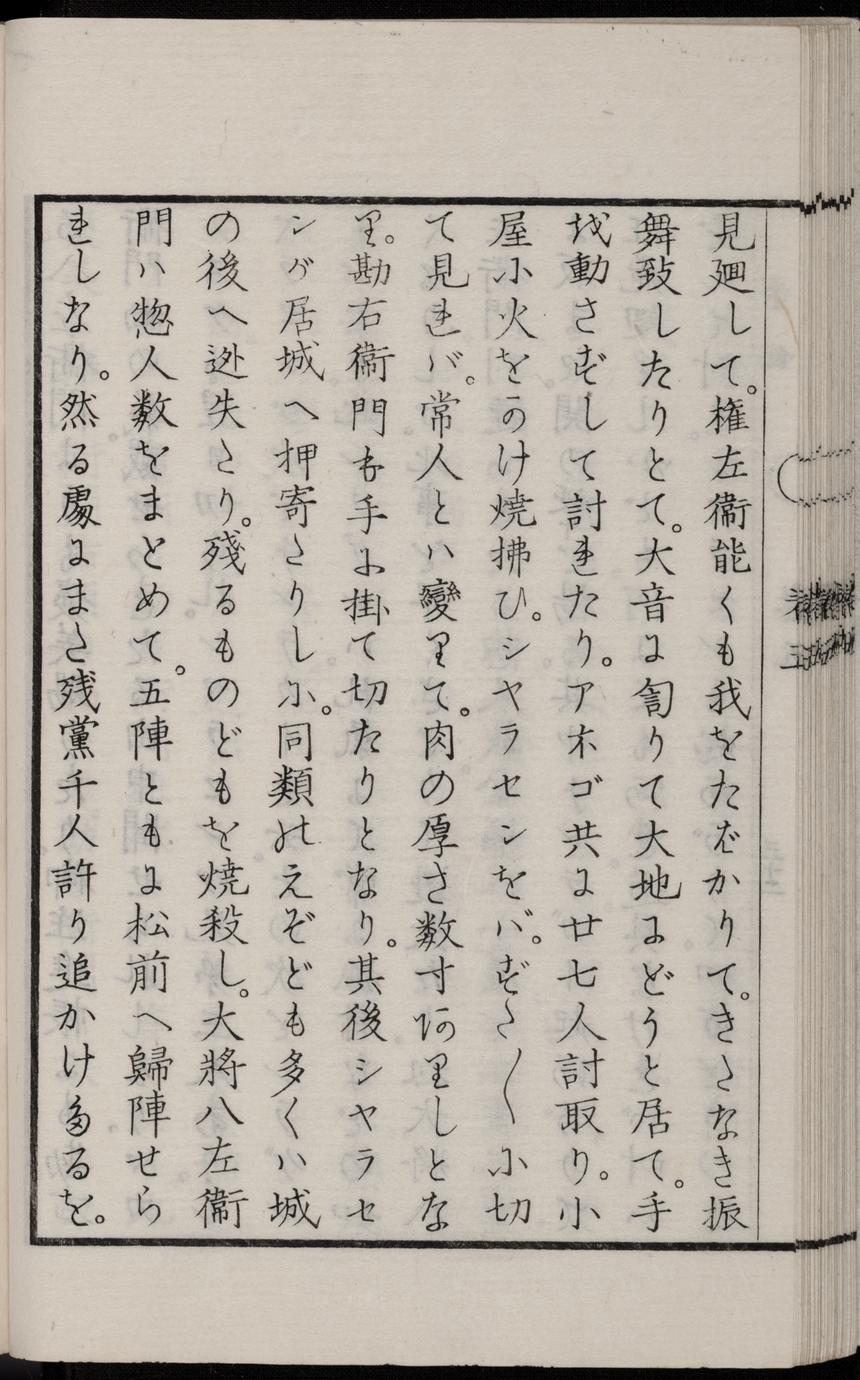 見廻して。権左衞能くも我をたばかりて。きたなき振
舞致したりとて。大音に訇りて大地にどうと居て。手
を動さずして討れたり。アホゴ共に廿七人討取り。小
屋に火をかけ焼拂ひ。シヤラセンをバ。ずた〱に切
て見れバ。常人とハ變りて。肉の厚さ数寸ありしとな
り。勘右衞門も手に掛て切たりとなり。其後シヤラセ
ンが居城へ押寄たりしに。同類のえぞども多くハ城
の後へ迯失たり。殘るものどもを焼殺し。大將八左衞
門ハ惣人数をまとめて。五陣ともに松前へ歸陣せら
れしなり。然る處にまた残黨千人許り追かけ來るを。